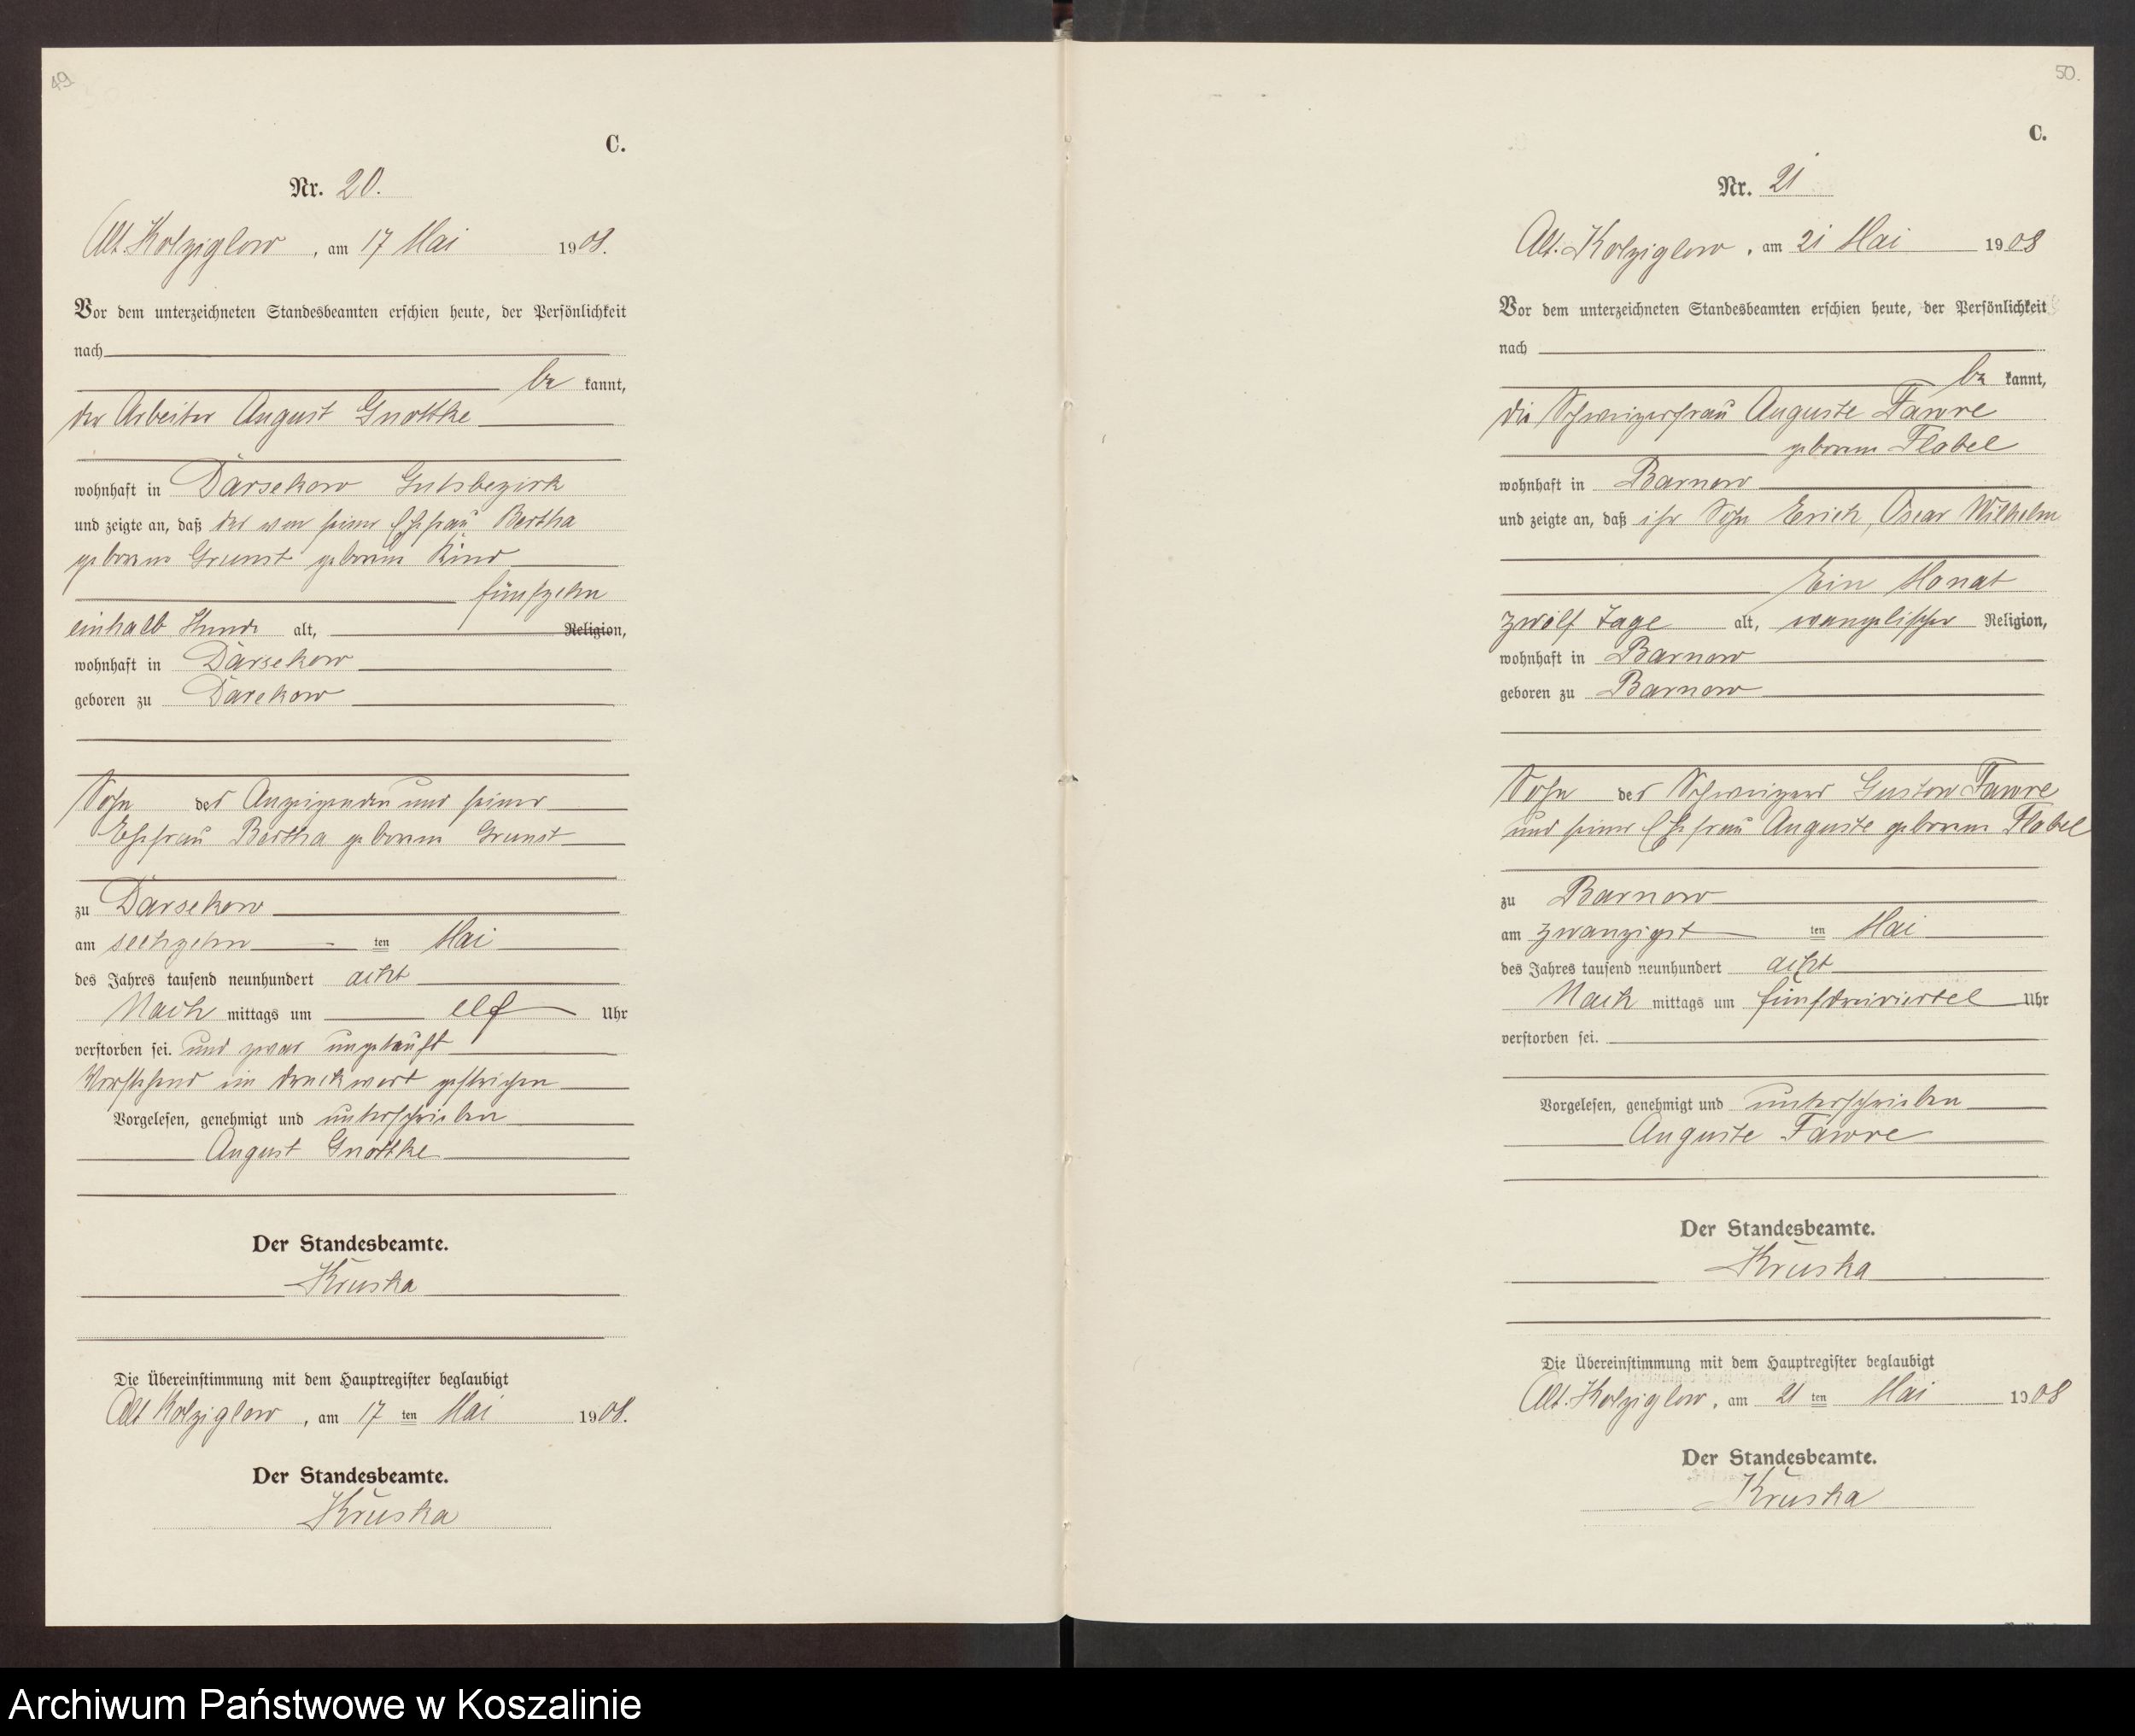 49
C.
Nr. 20.
Alt. Kolziglow, am 17 Mai 1908.
Vor dem unterzeichneten Standesbeamten erschien heute, der Persönlichkeit
nach
be kannt,
der Arbeiter August Gnottke
wohnhaft in Darsekow Gutsbezirk
und zeigte an, daß das von seiner Ehefrau Bertha
geborene Grunst geborene Kind
fünfzehn
einhalb Stunde alt, Religion,
wohnhaft in Darsekow
geboren zu Darekow
Sohn des Anzeigenden und seiner
Ehefrau Bertha geborene Grunst
zu Darsekow
am sechzehn ten Mai
des Jahres tausend neunhundert acht
Nach mittags um elf Uhr
verstorben sei. und zwar ungetauft
Vorstehend ein Druckwort gestrichen
Vorgelesen, genehmigt und unterschrieben
August Gnottke
Der Standesbeamte.
Kruska
Die Übereinstimmung mit dem Hauptregister beglaubigt
Alt Kolziglow, am 17 ten Mai 1908.
Der Standesbeamte.
Kruska
50.
C.
Nr. 21
Alt. Kolziglow, am 21 Mai 1908
Vor dem unterzeichneten Standesbeamten erschien heute, der Persönlichkeit
nach
be kannt,
die Schweizerfrau Auguste Fawre
geborene Flobel
wohnhaft in Barnow
und zeigte an, daß ihr Sohn Erich, Oscar Wilhelm
Ein Monat
zwölf Tage alt, evangelischer Religion,
wohnhaft in Barnow
geboren zu Barnow
Sohn des Schweizers Gustow Fawre
und seiner Ehefrau Auguste geborene Flobel
zu Barnow
am zwanzigst ten Mai
des Jahres tausend neunhundert acht
Nach mittags um fünfdreiviertel Uhr
verstorben sei.
Vorgelesen, genehmigt und unterschrieben
Auguste Fawre
Der Standesbeamte.
Kruska
Die Übereinstimmung mit dem Hauptregister beglaubigt
Alt. Kolziglow, am 21 ten Mai 1908
Der Standesbeamte.
Kruska
Archiwum Państwowe w Koszalinie